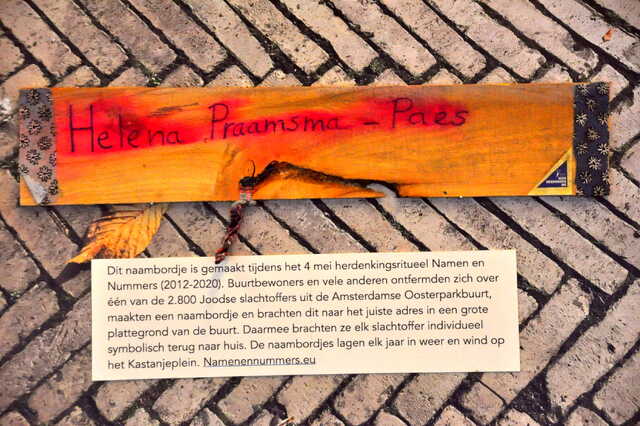 Helena Praamsma - Paes
Dit naambordje is gemaakt tijdens het 4 mei herdenkingsritueel Namen en
Nummers (2012-2020). Buurtbewoners en vele anderen ontfermden zich over
één van de 2.800 Joodse slachtoffers uit de Amsterdamse Oosterparkbuurt,
maakten een naambordje en brachten dit naar het juiste adres in een grote
plattegrond van de buurt. Daarmee brachten ze elk slachtoffer individueel
symbolisch terug naar huis. De naambordjes lagen elk jaar in weer en wind op
het Kastanjeplein. Namenennummers.eu